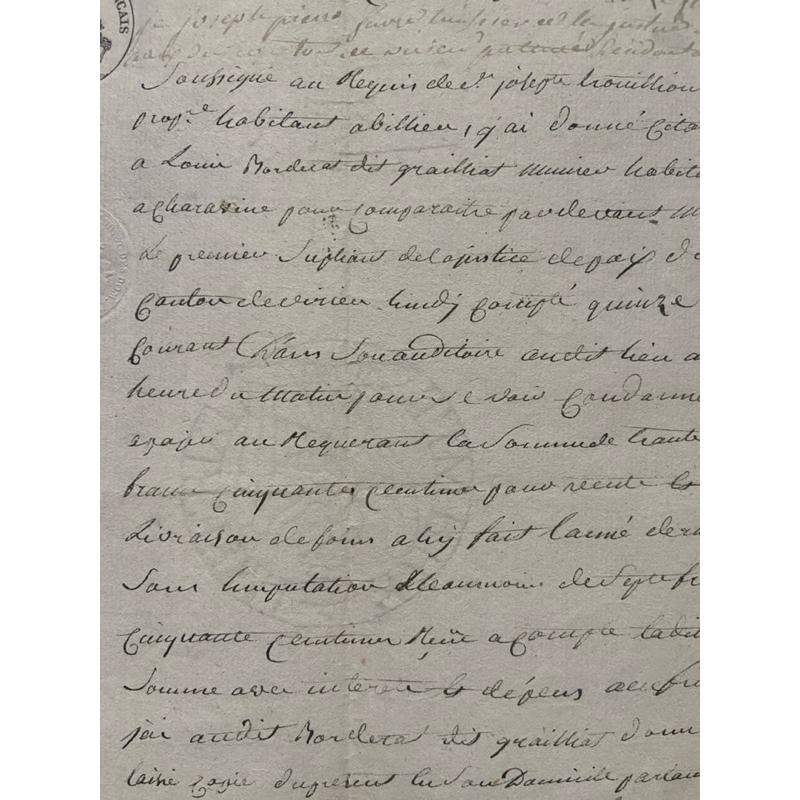 ÇAIS
je joseph pierre favre huissier de la justice
soussigné au Requis de Sr. joseph trouillion
propre. habitant abillieu, j'ai donné Cita
a Louis Borderat dit grailliat Munier habita
acharavine pour Comparaitre pardevant M
Le premier Supliant delajustice depaix du
Canton devirieu lundy Compté quinze
Courant Dans Sonauditoire audit lieu a
heure du Matin pour Se voir Condamne
apayer au Requerant La Sommede trante
francs Cinquante Centimes pour vente Et
Livraison defoins aluy fait lanné derni
Sous limputation Neaumoins de Septe fr
Cinquante Centimes Reçu acompte ladit
Somme avec interets Et dépens aux fr
j'ai audit Borderat dit grailliat donn
laissé Copie duprésent En Son Domicile parlan